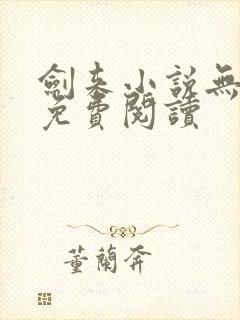 劍來小説無
免費閱讀
董蘭奔